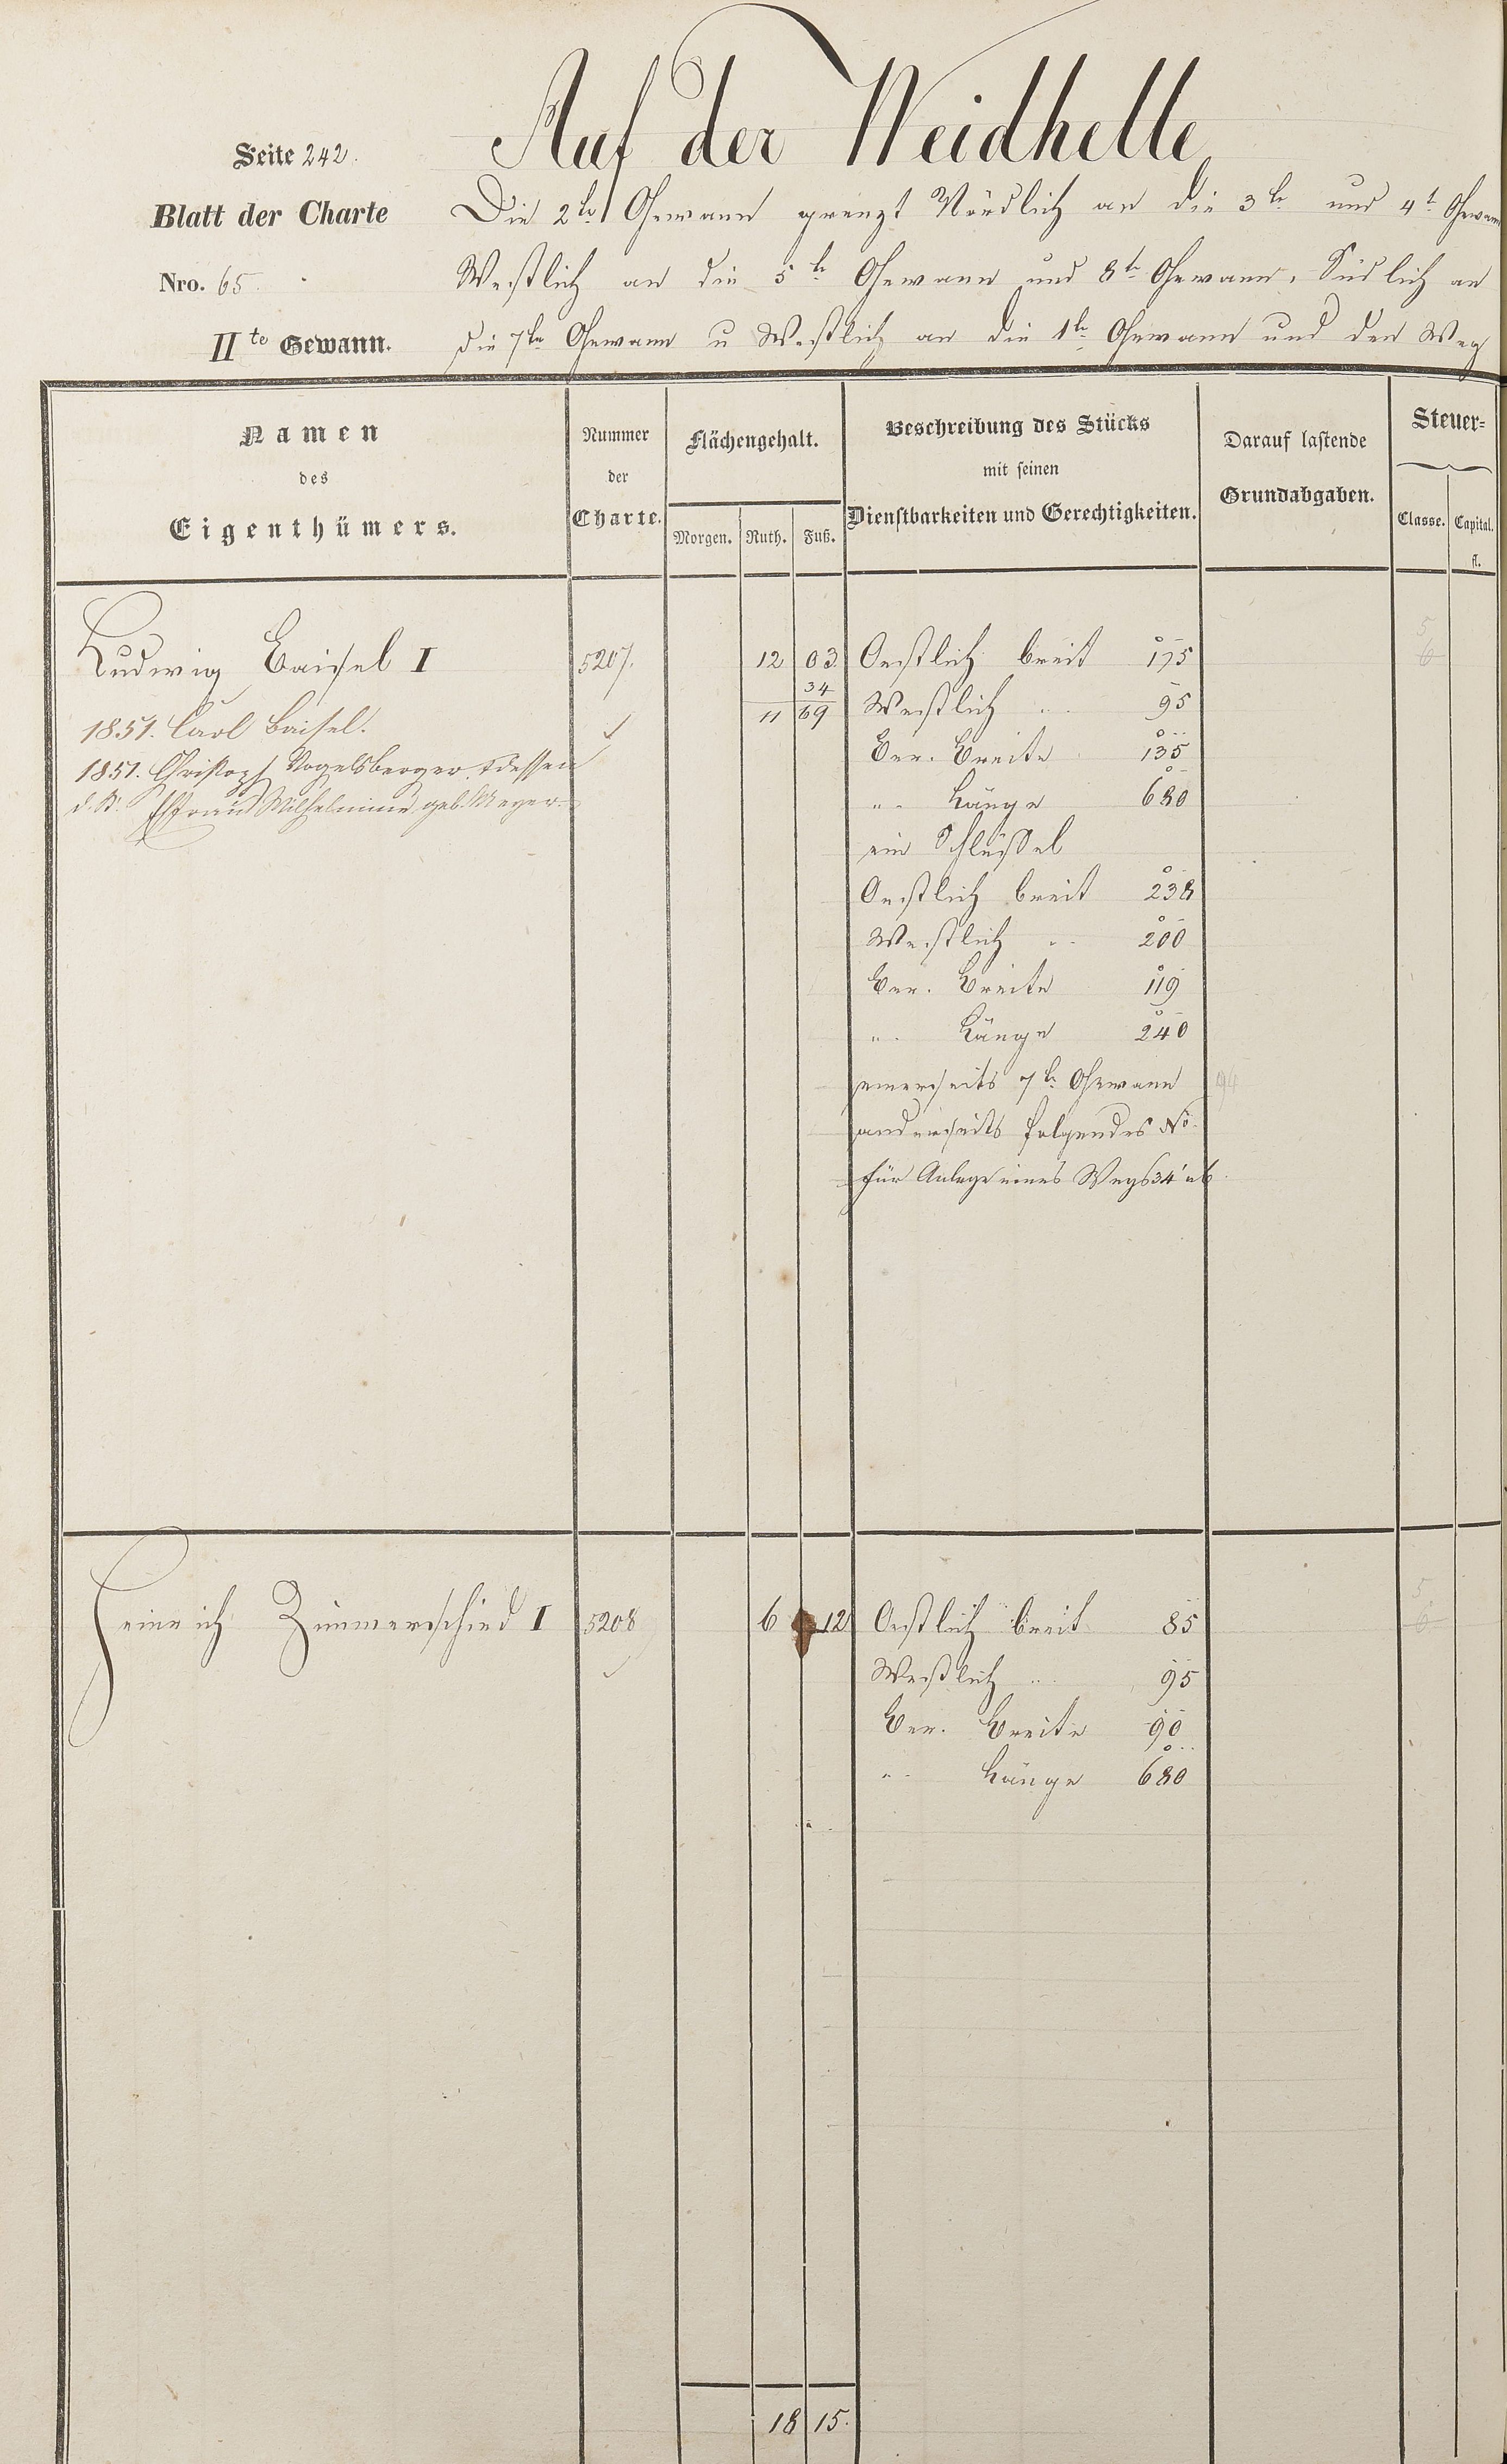 Auf der Weidhelle
Seite 242.
Blatt der Charte
Nro. 65.
IIte Gewann.
Die 2te Gewann grenzt Nördlich an die 3te und 4te Gewann
Westlich an die 5te Gewann und 8te Gewann, Südlich an
die 7te Gewann u Westlich an die 1te Gewann und den Weg
Namen
des
Eigenthümers.
Nummer
der
Charte.
Flächengehalt.
Morgen. Ruth. Fuß.
Beschreibung des Stücks
mit seinen
Dienstbarkeiten und Gerechtigkeiten.
Darauf lastende
Grundabgaben.
Steuer=
Classe. Capital.
fl.
Ludwig Baisel I 5207. 12 03 Oestlich breit 175 5 6
34
11 69 Westlich " 95
1851. Carl Baisel.
Ver. Breite 135
1851. Christoph Vogelsberger & dessen
" Länge 680
d. B. Ehefrau Wilhelmine geb. Meyer
ein Schlüssel
Oestlich breit 238
Westlich " 200
Ver. Breite 119
" Länge 240
einerseits 7te Gewann 94
anderseits folgendes No
für Anlage eines Wegs 34' ab.
Heinrich Zimmerschied I 5208 6 12 Oestlich breit 85 5 6
Westlich " 95
Ver. Breite 90
" Länge 680
18 15.